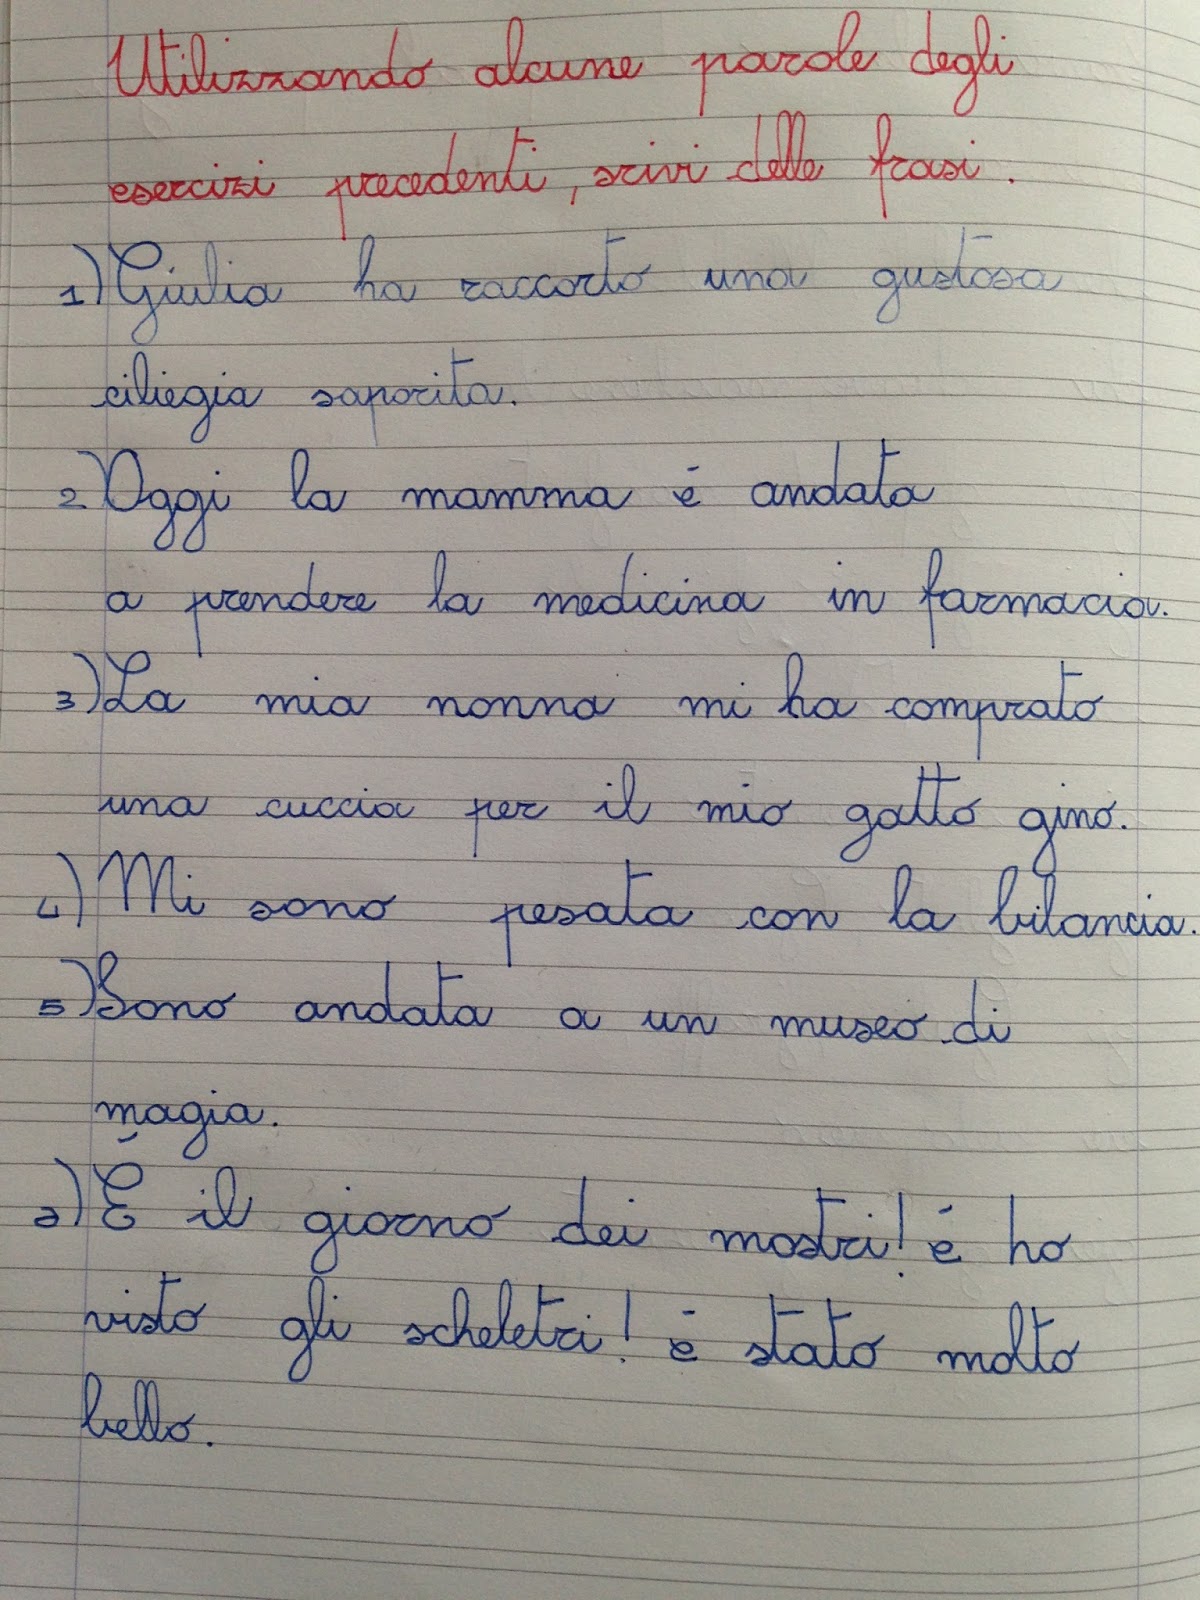 Utilizzando alcune parole degli
esercizi precedenti, scrivi delle frasi.
1) Giulia ha raccorto una gustosa
ciliegia saporita.
2) Oggi la mamma é andata
a prendere la medicina in farmacia.
3) La mia nonna mi ha comprato
una cuccia per il mio gatto gino.
4) Mi sono pesata con la bilancia.
5) Sono andata a un museo di
magia.
2) É il giorno dei mostri! é ho
visto gli scheletri! é stato molto
bello.